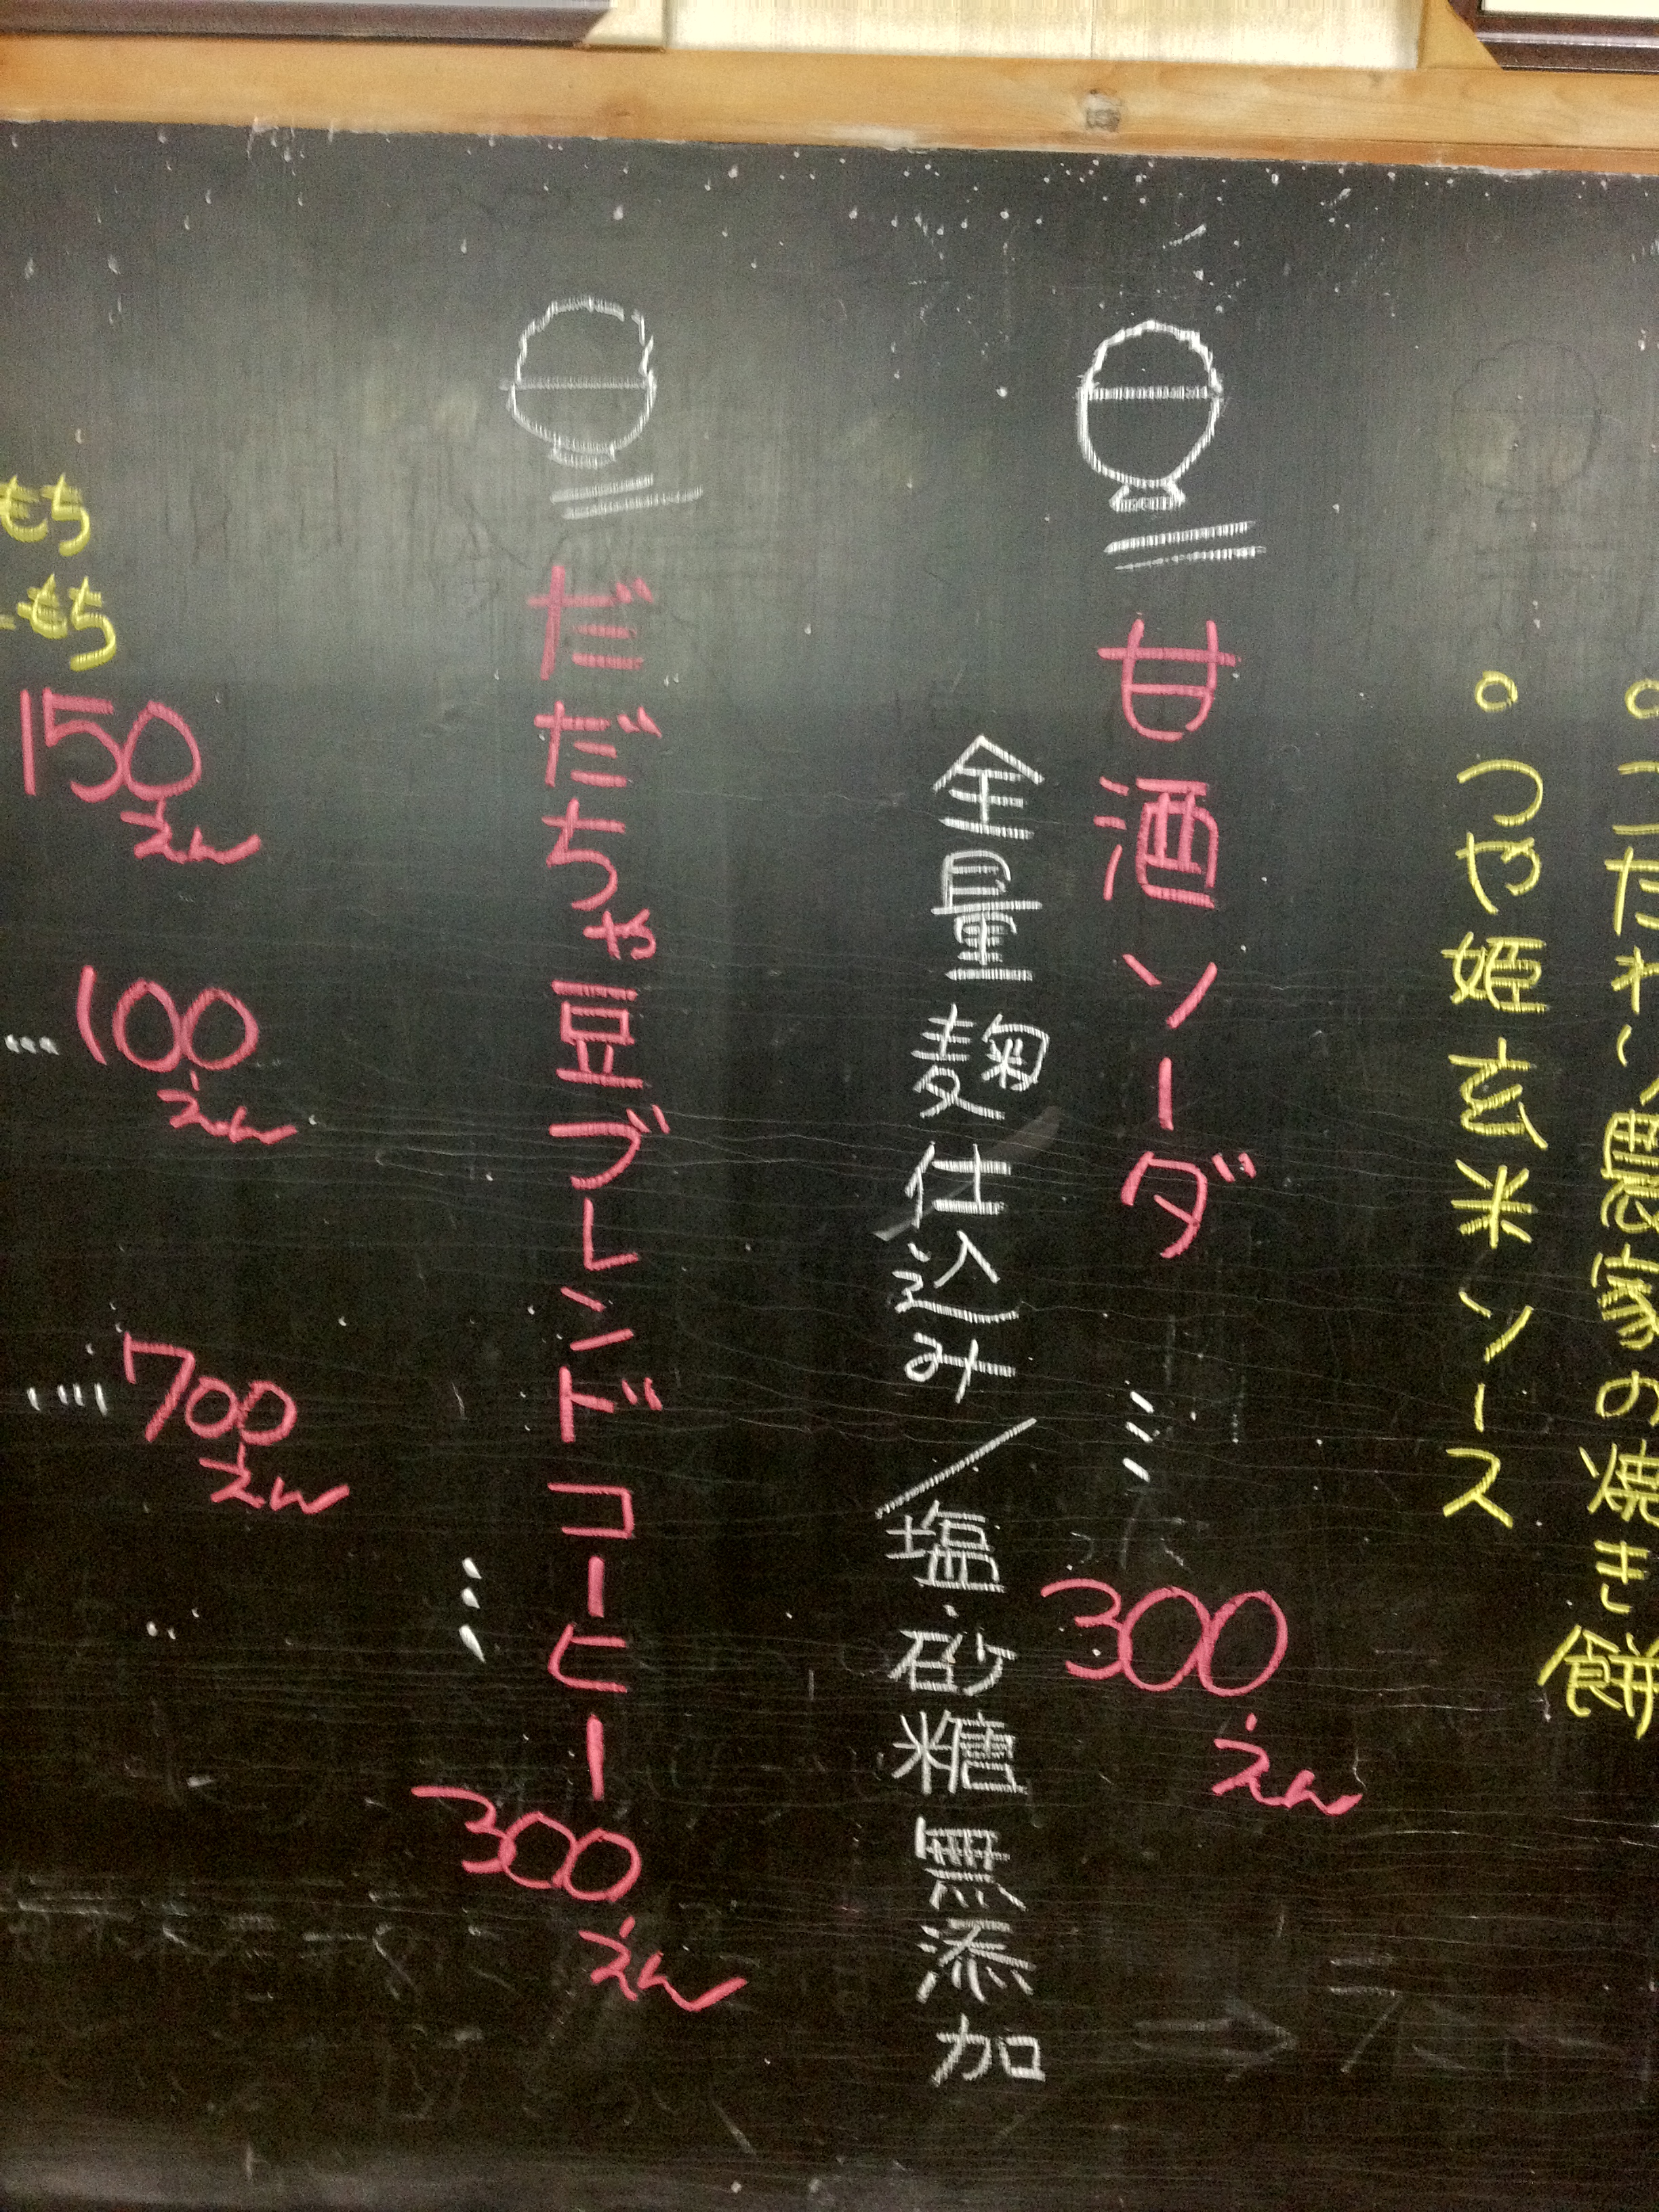 農家の焼き餅
。つや姫玄米ソース
甘酒ソーダ … 300えん
全量麹仕込み／塩・砂糖無添加
だだちゃ豆ブレンドコーヒー … 300えん
もち
もち
150えん
… 100えん
…. 700えん